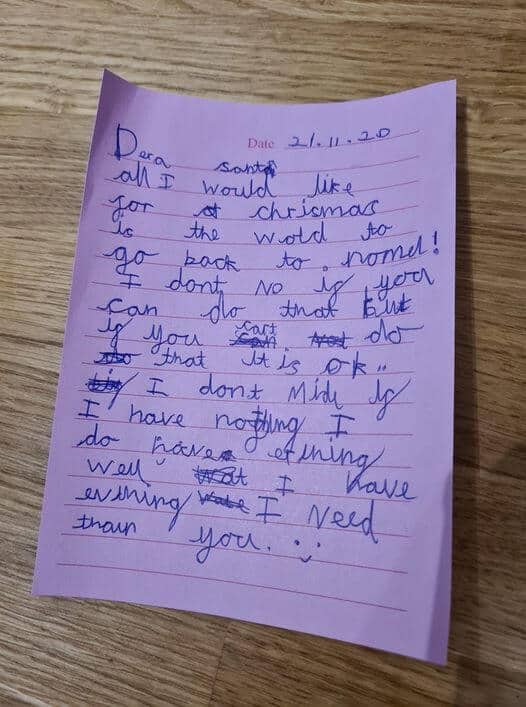 Date 21.11.20
Dera santa
all I would like
for chrismas
is the wold to
go back to nomel!
I dont no if you
can do that but
if you cart do
that it is ok..
I dont Midu if
I have nothing I
do have efining
well I have
evining I Need
thain you. :)